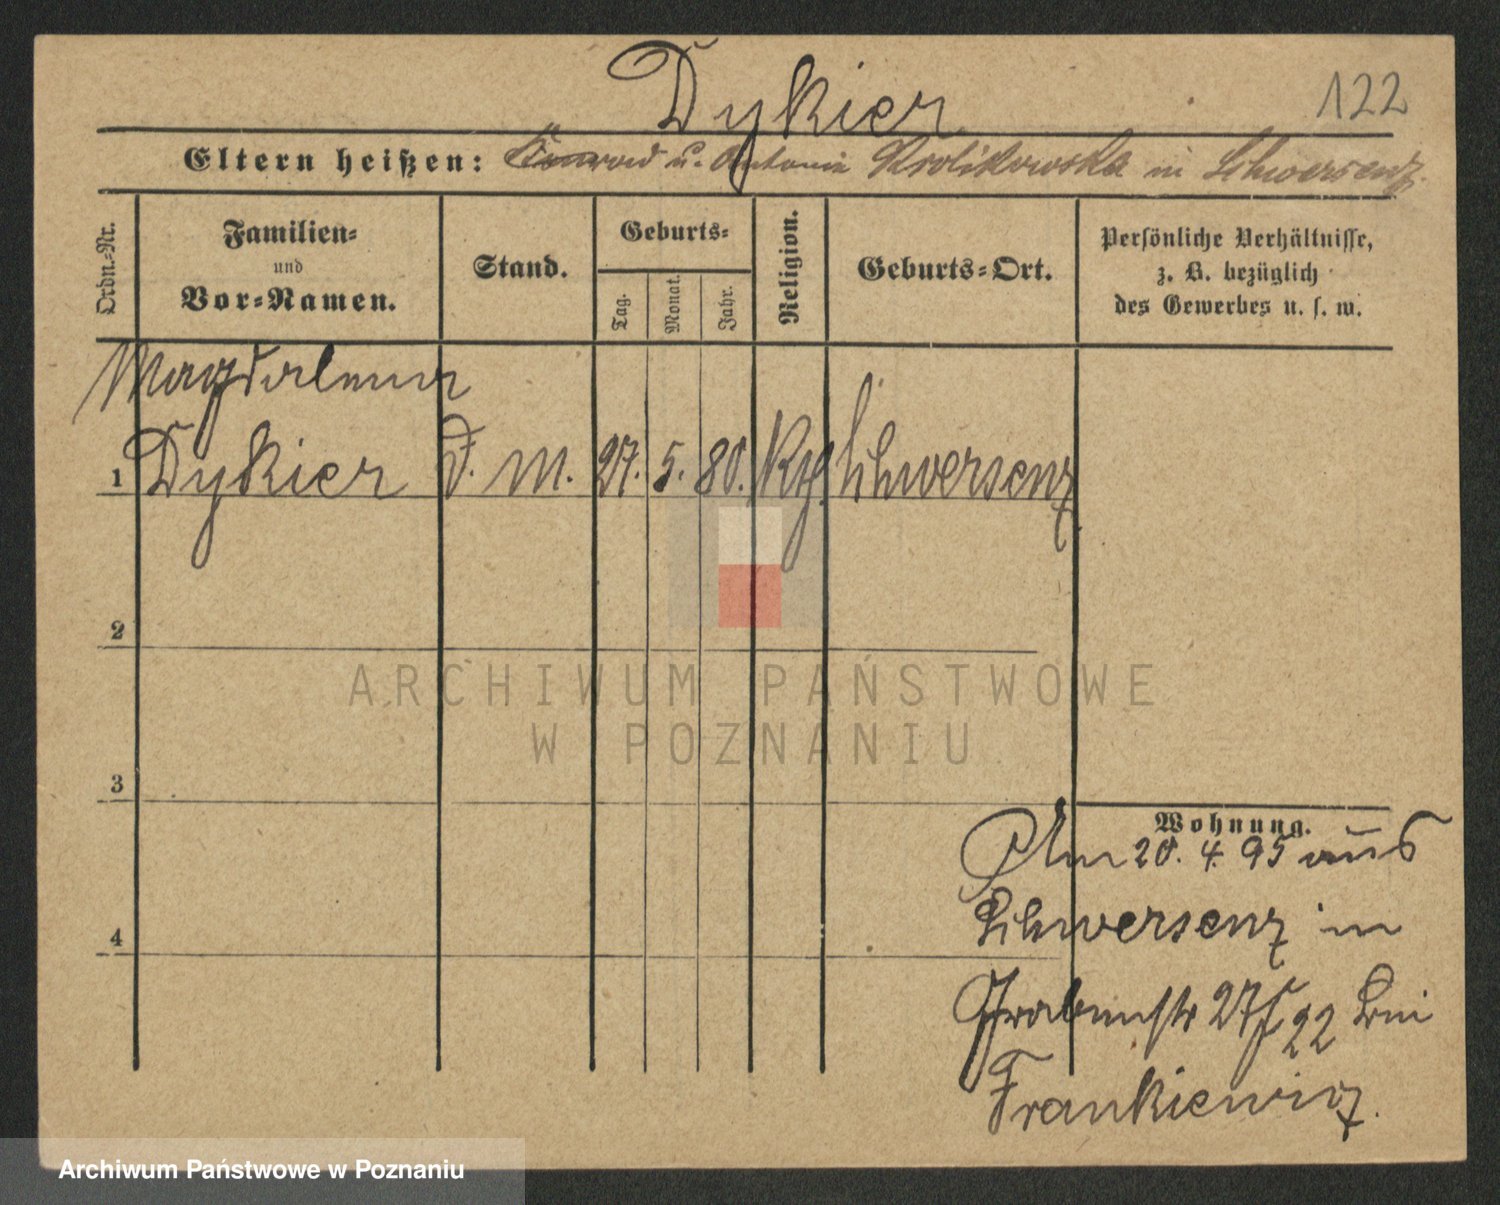 Dykier
122
Eltern heißen: Konrad u. Antonia Krolikowska in Schwersenz
Ordn.-Nr.
Familien-
und
Vor-Namen.
Stand.
Geburts-
Tag.
Monat.
Jahr.
Religion.
Geburts-Ort.
Persönliche Verhältnisse,
z. B. bezüglich
des Gewerbes u. s. w.
Magdalena
1 Dykier D. M. 27. 5. 80. Kth. Schwersenz
2
3
4
Wohnung.
Am 20. 4. 95 aus
Schwersenz in
Grabenstr 27/22 bei
Frankiewicz.
ARCHIWUM PAŃSTWOWE
W POZNANIU
Archiwum Państwowe w Poznaniu